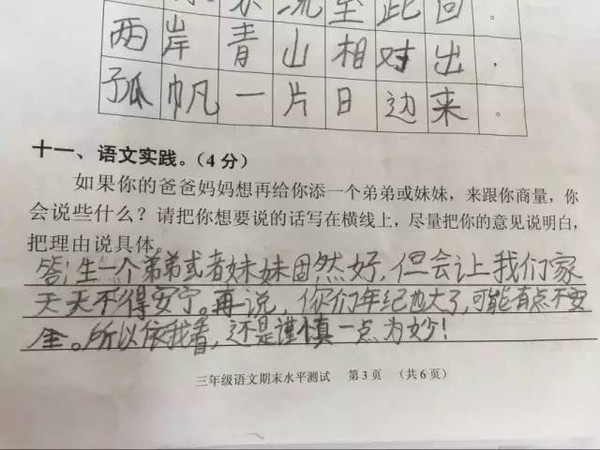 流至此回。
两岸青山相对出,
孤帆一片日边来。
十一、语文实践。(4分)
如果你的爸爸妈妈想再给你添一个弟弟或妹妹，来跟你商量，你
会说些什么？请把你想要说的话写在横线上，尽量把你的意见说明白，
把理由说具体。
答：生一个弟弟或者妹妹固然好，但会让我们家
天天不得安宁。再说，你们年纪也大了，可能有点不安
全。所以依我看，还是谨慎一点为妙！
三年级语文期末水平测试 第3页 （共6页）